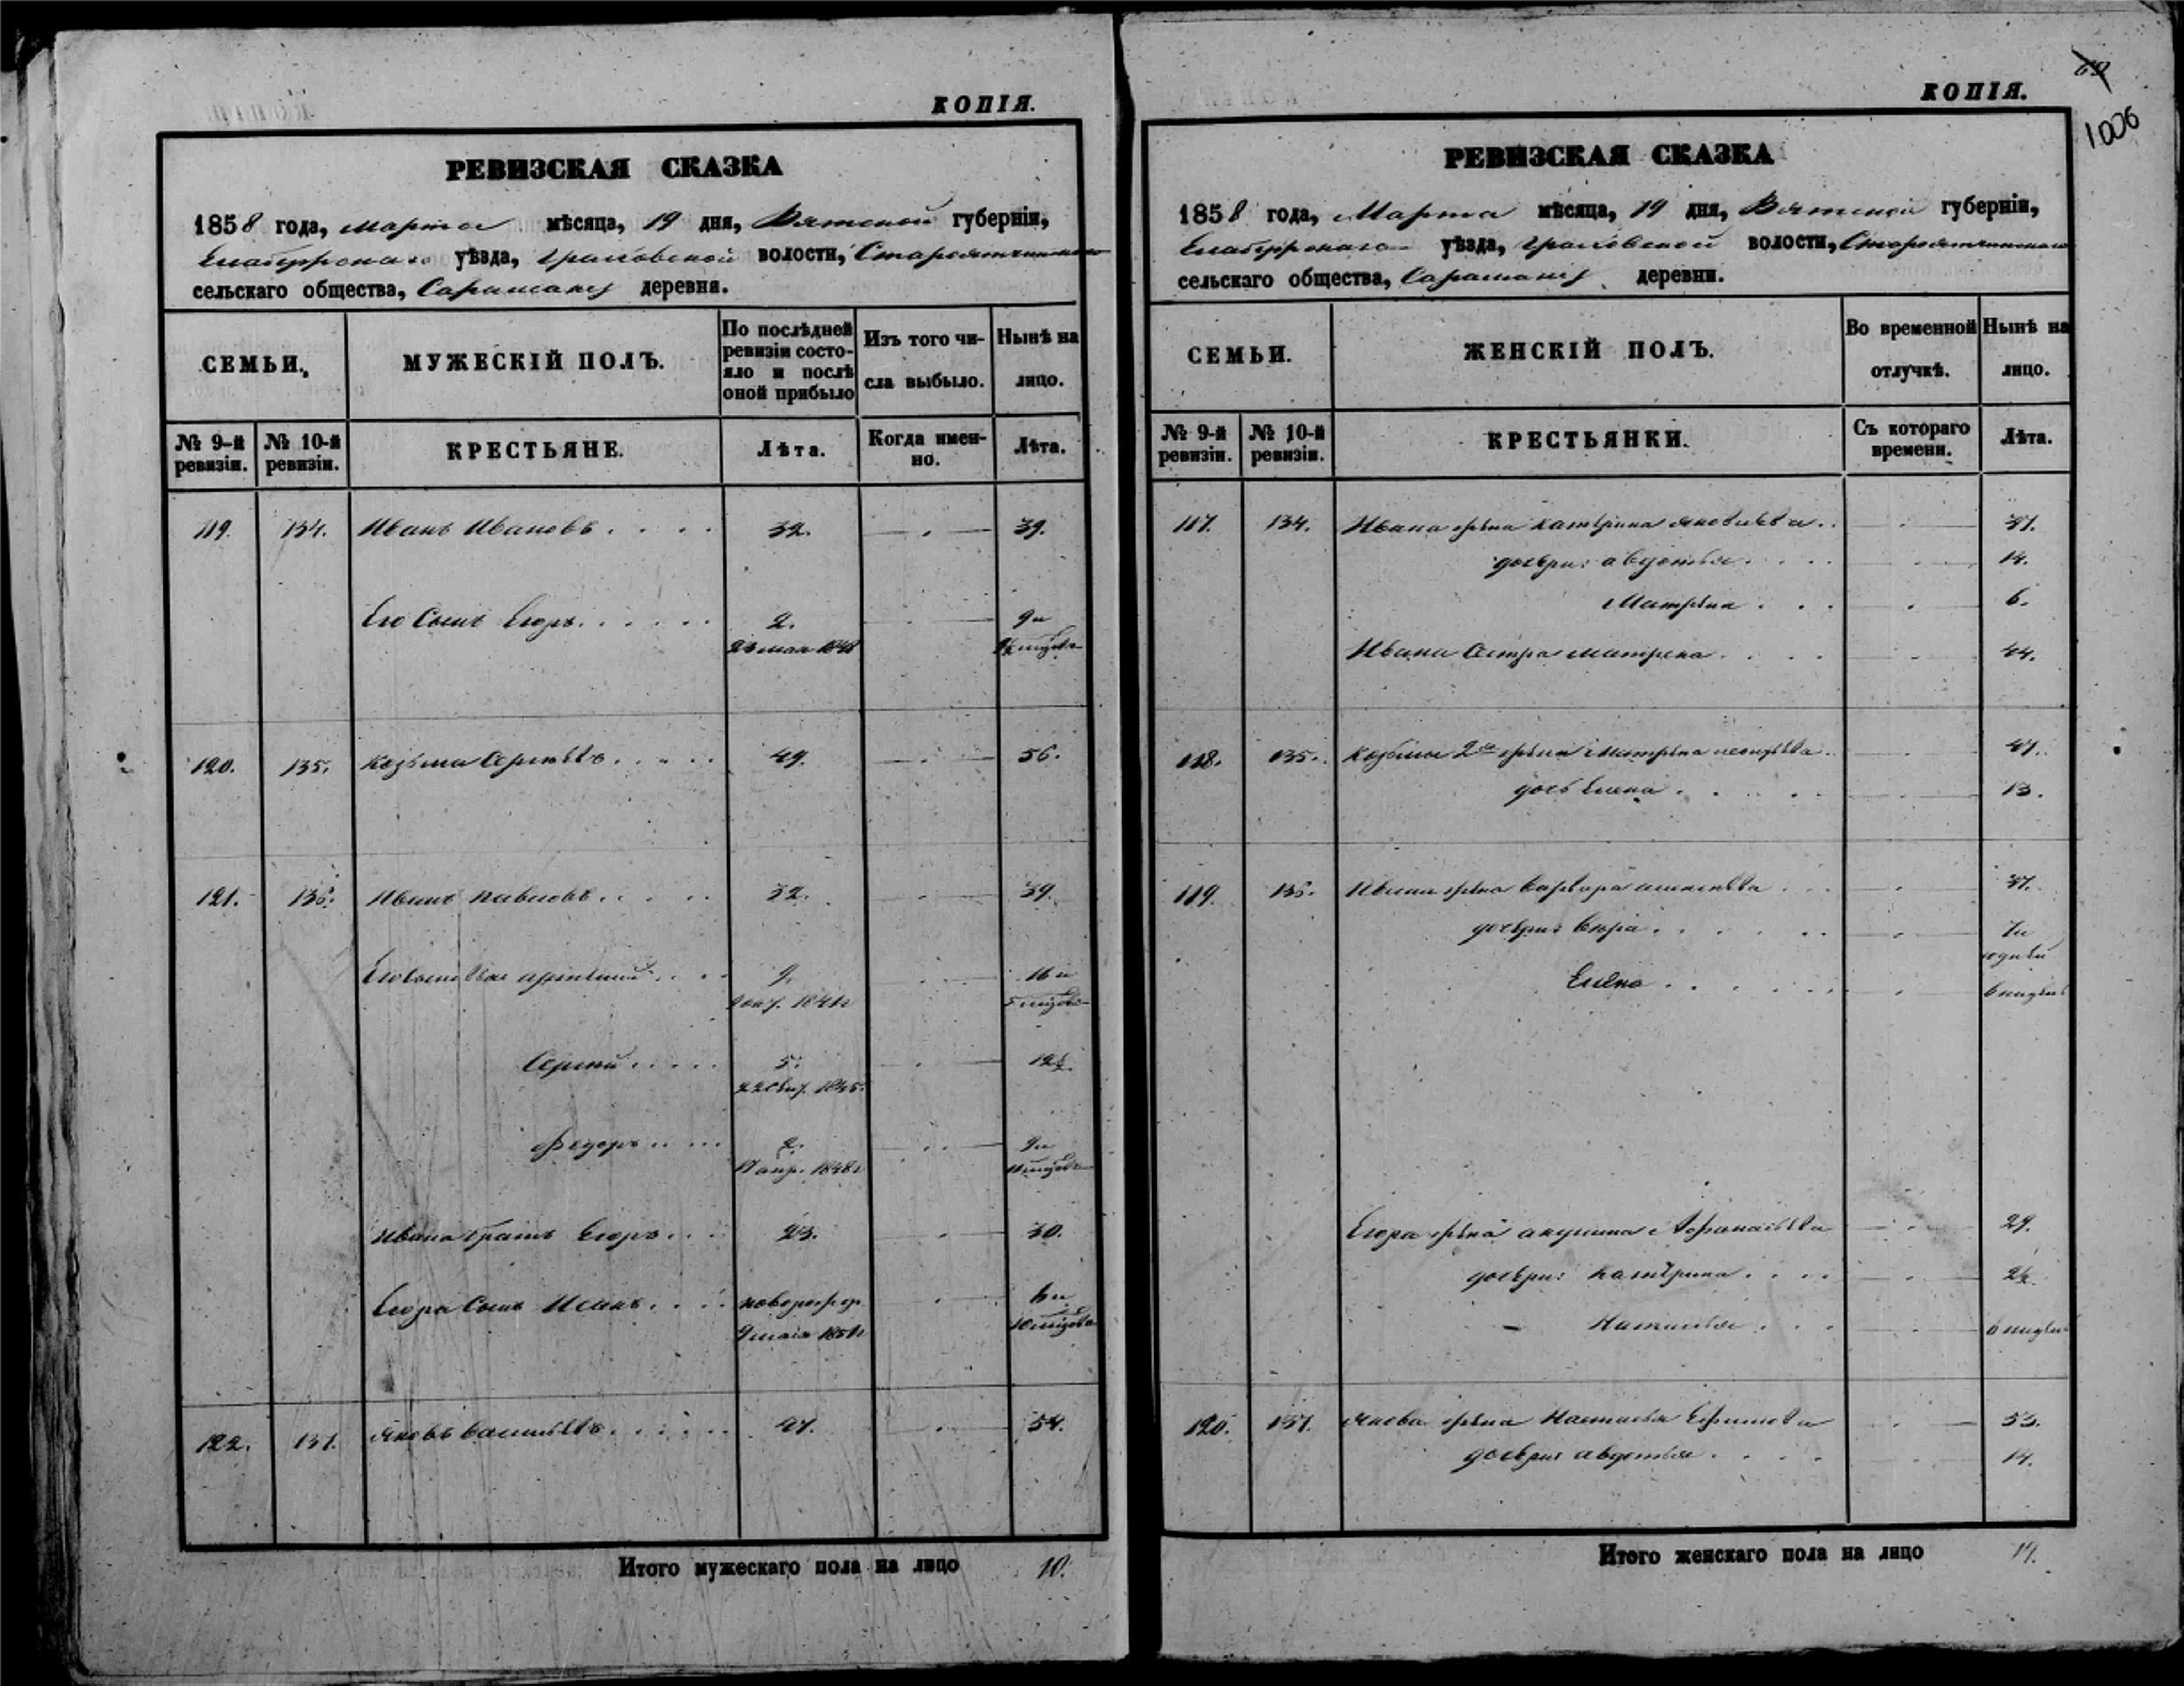 КОПІЯ.
РЕВИЗСКАЯ СКАЗКА
1858 года, марта мѣсяца, 19 дня, Вятской губерніи,
Елабужскаго уѣзда, Граховской волости, Староятчинскаго
сельскаго общества, Сарамакъ деревня.
СЕМЬИ.
МУЖЕСКІЙ ПОЛЪ.
По послѣдней ревизіи состо-
яло и послѣ оной прибыло
Изъ того чи-
сла выбыло.
Нынѣ на
лицо.
№ 9-й ревизіи.
№ 10-й ревизіи.
КРЕСТЬЯНЕ.
Лѣта.
Когда имен-
но.
Лѣта.
119. 134. Иванъ Ивановъ 32. 39.
Его Сынъ Егоръ 2. 9 и
мая 1848
120. 135. Козьма Сергѣевъ 49. 56.
121. 136. Иванъ Павловъ 32. 39.
Его Сыновья 9. 16 и
1841 г 5 мѣсяцовъ
Сергѣй 5. 12½
22 Сент. 1845
Федоръ 2. 9 и
17 апр. 1848 г 11 мѣсяцовъ
Ивана братъ Егоръ 23. 30.
Егора Сынъ новорожд 6 и
9 мая 1851 г 10 мѣсяцовъ
122. 137. Яковъ Васильевъ 47. 54.
Итого мужескаго пола на лицо 10.
КОПІЯ.
1006
РЕВИЗСКАЯ СКАЗКА
1858 года, Марта мѣсяца, 19 дня, Вятской губерніи,
Елабужскаго уѣзда, Граховской волости, Староятчинскаго
сельскаго общества, Сарамакъ деревни.
СЕМЬИ.
ЖЕНСКІЙ ПОЛЪ.
Во временной
отлучкѣ.
Нынѣ на
лицо.
№ 9-й ревизіи.
№ 10-й ревизіи.
КРЕСТЬЯНКИ.
Съ котораго
времени.
Лѣта.
117. 134. Ивана жена Катерина Яковлева 37.
дочери: Авдотья 14.
Матрена 6.
Ивана Сестра Матрена 44.
118. 135. Козьмы 2я жена Матрена 47.
дочь Елена 13.
119. 136. Ивана жена Варвара Алексѣева 37.
дочери: Вера 7 и
Елена 6 недѣль
Егора жена Акулина Афанасьева 29.
дочери: Катерина 2½
Наталья 6 недѣль
120. 137. Якова жена Настасья Ефимова 53.
дочери Авдотья 14.
Итого женскаго пола на лицо 14.